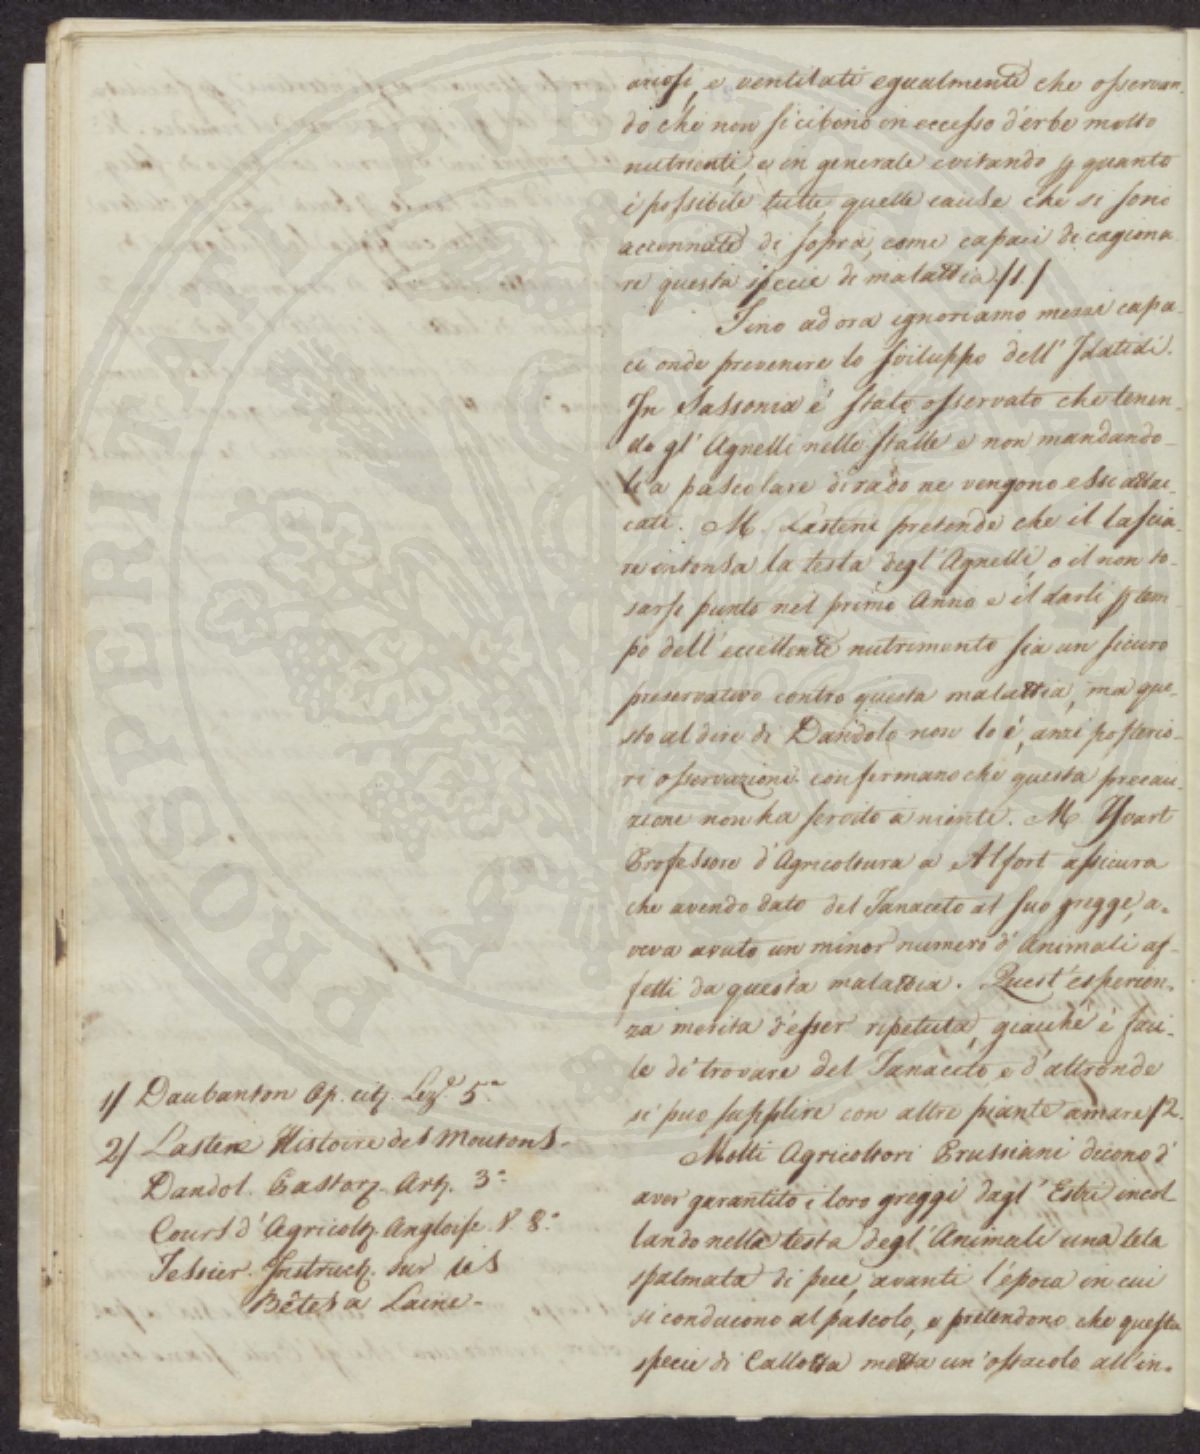 ariosi, e ventilati egualmente che osservan-
do che non si cibono in eccesso d'erbe molto
nutrienti, e in generale evitando p quanto
è possibile tutte quelle cause che si sono
accennate di sopra, come capaci di cagiona
re questa specie di malattia /1/
Fino ad ora ignoriamo mezzi capa-
ci onde prevenere lo sviluppo dell' Idatidi.
In Sassonia è stato osservato che tenen-
do gl' Agnelli nelle stalle e non mandando-
li a pascolare di rado ne vengono essi attac-
cati. M. Lasterie pretende che il lascia-
re intonsa la testa degl' Agnelli, o il non to-
sarsi punto nel primo Anno e il darli p tem-
po dell' eccellente nutrimento sia un sicuro
preservativo contro questa malattia, ma que-
sto al dire di Dandolo non lo è, anzi posterio-
ri osservazioni confermano che questa precau-
zione non ha servito a niente. M. Yvart
Professore d'Agricoltura a Alfort assicura
che avendo dato del Tanaceto al suo gregge, a-
veva avuto un minor numero d'Animali af-
fetti da questa malattia. Quest' esperien-
za merita d'esser ripetuta, giacchè è faci-
le di trovare del Tanaceto, e d'altronde
si può supplire con altre piante amare /2.
Molti Agricoltori Prussiani dicono d'
aver garantito i loro greggi dagl' Estri incol
lando nella testa degl' Animali una tela
spalmata di pece, avanti l'epoca in cui
si conducono al pascolo, e pretendono che questa
specie di Callotta metta un' ostacolo all'in-
1/ Daubanton Op. cit. Lez. 5.a
2/ Lasterie Histoire des Moutons-
Dandol. Pastor. Art. 3.
Cours d'Agricolt. Angloise. 8.
Tessier. Instruct. sur les
Bêtes a Laine-
PROSPERITATI PUBLICAE